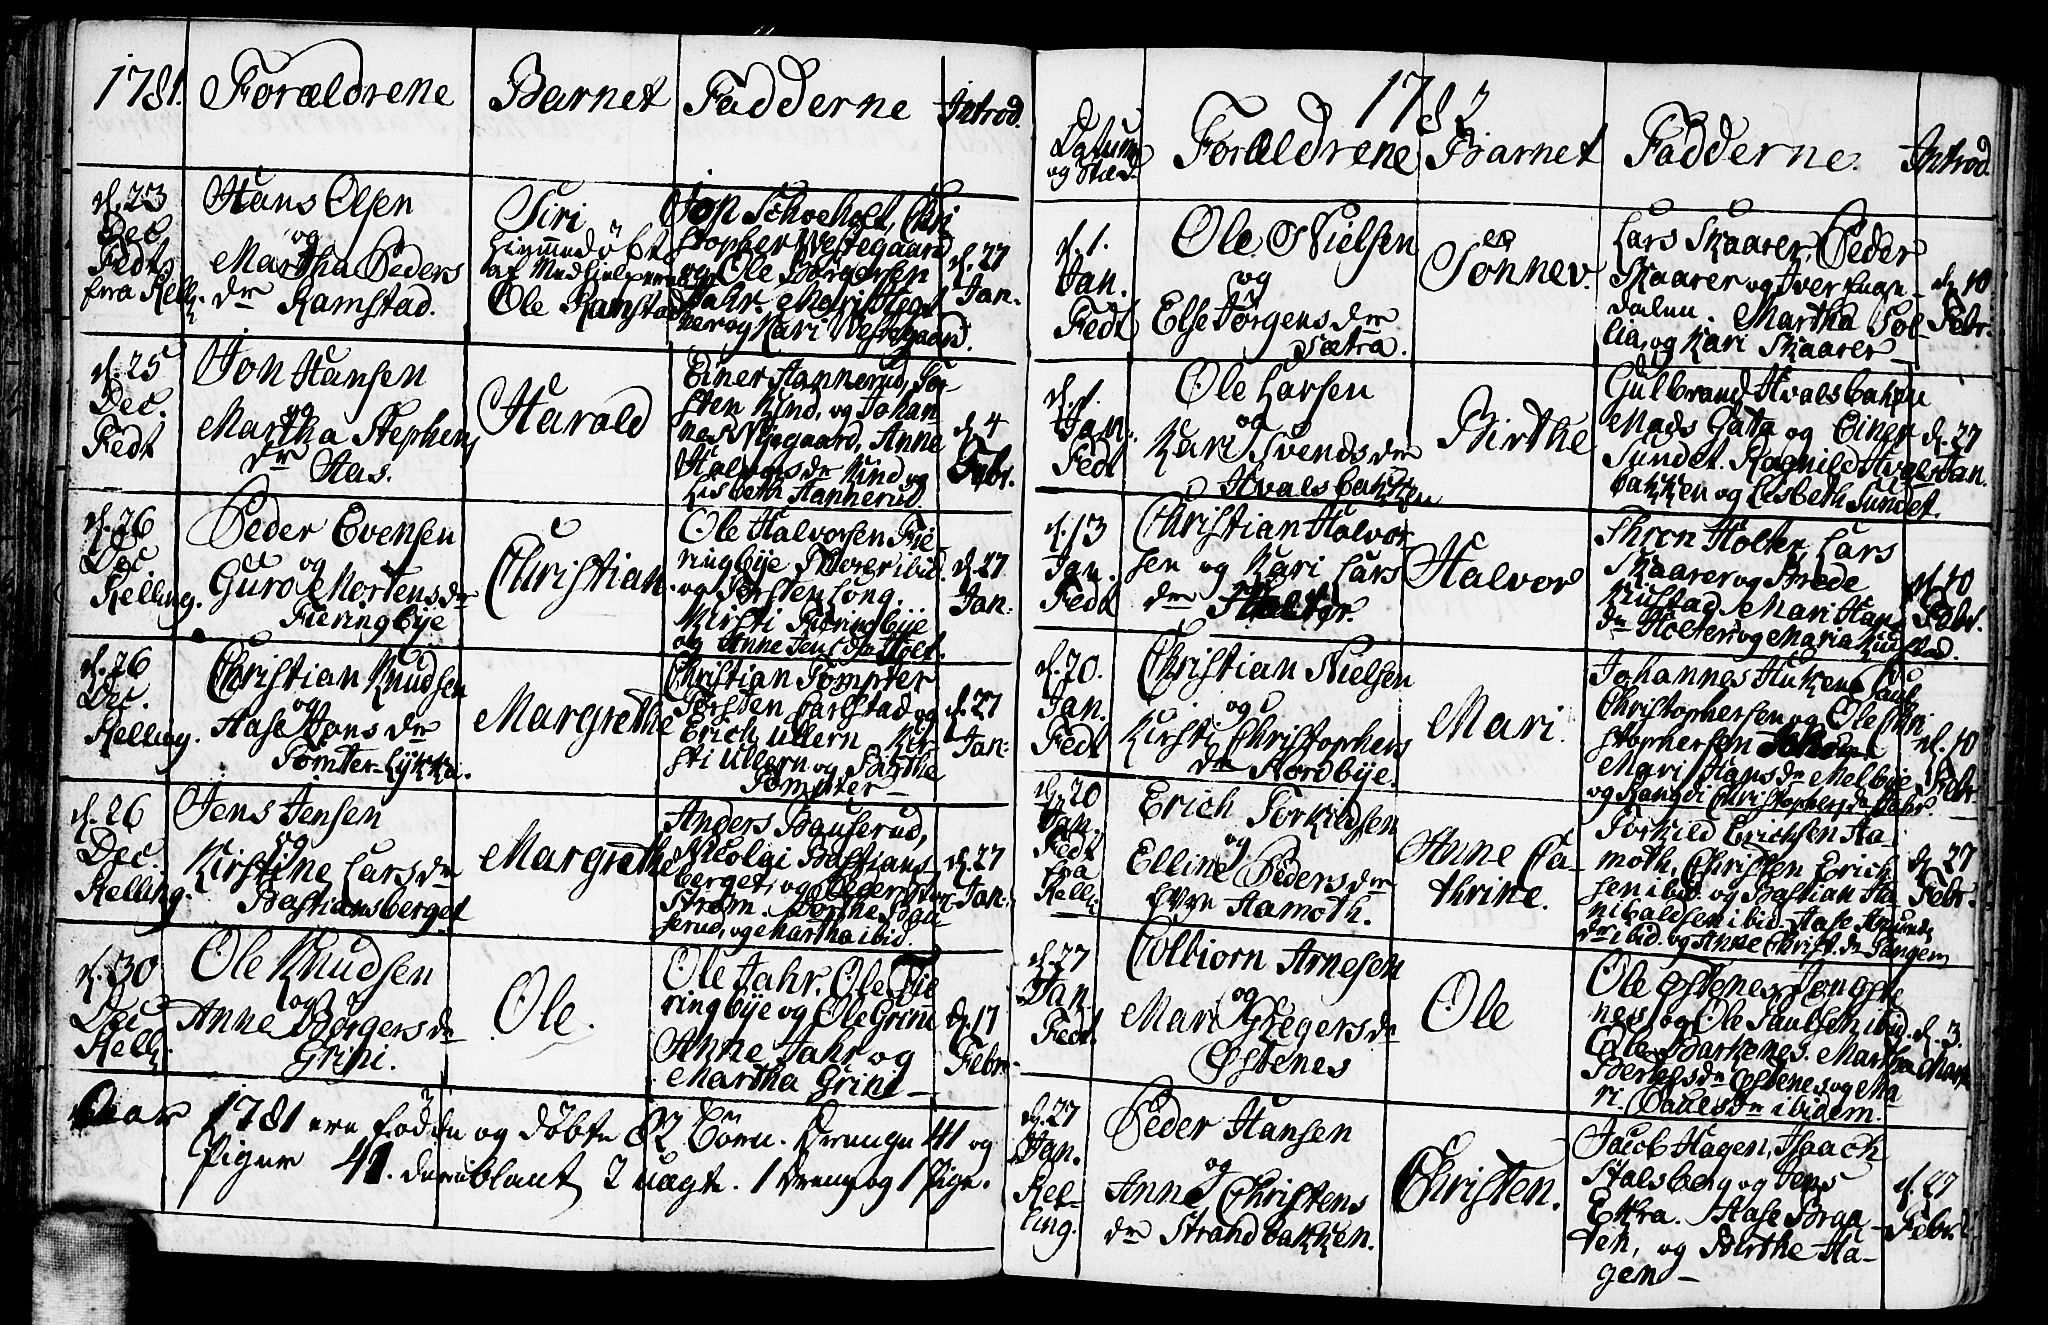 1781. Forældrene Barnet Fadderne Introd.
d. 23
Dec.
Fedt
fra Kell.
Hans Olsen
og
Martha Peders
dr Ramstad.
Siri
hiemmedøbt
af Medhielperen
Ole Ramstad
Jon Schoeholt, Chri
stopher Westegaard
og Ole Børgersen
Jahr. Mari
og Kari Westegaard.
d. 27
Jan.
d. 25
Dec.
Fedt
Jon Hansen
og
Martha Stephens
dr
Aas.
Harald
Einer Hannerud, Tor-
sten Kind, og Johan-
nes Nygaard, Anne
Halvorsdr Kind og
Lisbeth Hannerud.
d. 4
Febr.
d. 26
Dec.
Kelling.
Peder Evensen
og
Guro Mortensdr
Fieringbye
Christian
Ole Halvorsen Fie-
ringbye ibid.
og Torsten Long.
Kirsti Fieringbye
og Anne Jensdr Holt.
d. 27
Jan:
d. 26
Dec.
Kelling.
Christian Knudsen
og
Aase Hans dr
Tømter-Lykka.
Margrethe
Christian Tømpter
Torsten Carlstad og
Erich Ullern Kir-
sti Ullern og Birthe
Tømpter
d. 27
Jan:
d. 26
Dec.
Kelling.
Jens Jensen
og
Kirstine Larsdr
Bastiansberget
Margrethe
Anders Bauserud,
Nicolai Bastians
berget, og Peder
Strøm. Dorthe Bau
serud, og Martha ibid.
d. 27
Jan:
d. 30
Dec
Kell.
Ole Knudsen
og
Anne Børgersdr
Grini.
Ole.
Ole Jahr, Ole Fie
ringbye og Ole Grini
Anne Jahr og
Martha Grini
d. 17
Febr.
Aar 1781 ere fødde og døbte 82 Børn. Drenge 41 og
Piger 41. deriblant 2 uægte. 1 Dreng og 1 Pige.
1782
Datum
og Sted.
Forældrene Barnet Fadderne. Introd.
d. 1.
Jan.
Fedt
Ole Nielsen
og
Else Jørgensdr
Sætra.
Sønnev.
Lars Skaarer, Peder
Skaarer og Iver Fuan-
dalen. Martha Sol-
lia, og Kari Skaarer
d. 10
Febr.
d. 1.
Jan:
Fedt
Ole Larsen
og
Kari Svendsdr
Hvalsbakken
Birthe
Gulbrand Hvalsbaken
Mads Gata og Einer
Sundet. Ragnild Hvals
bakken og Lisbeth Sundet.
d. 27
Jan.
d. 13
Jan.
Fedt
Christian Halvor
sen og Kari Lars
dr Holter.
Halvor
Thron Holter, Lars
Skaarer og Brede
Kulstad. Mari Hans
dr Holter og Maria Kulstad.
d. 10
Febr.
d. 20.
Jan.
Fedt
Christian Nielsen
og
Kirsti Christophers
dr Nordbye.
Mari.
Johannes Huken, Paul
Christophersen og Ole Chri
stophersen
Mari Hansdr Melbye
og Rangdi Christophersdr Jahr.
d. 10
Febr.
d. 20
Jan.
Fedt
fra
Kell:
Erich Torkildsen
og
Elline Pedersdr
Aamoth.
Anne Ca-
thrine.
Torkild Erichsen Aa-
moth, Christen Erich
sen ibid. og Bastian Ha-
nibaldsen ibid. Aase Amunds
dr ibid. og Anne Christ.dr Tangen
d. 27
Febr.
d. 27
Jan.
Fedt.
Colbiørn Arnesen
og
Mari Gregersdr
Østenes
Ole
Ole Østenes Jon Øste
nes, og Ole Paulsen ibid.
Ole Barkenes. Martha
Bertelsdr Østenes og Ma-
ri Paulsdr ibidem.
d. 3.
Mart.
d. 27
Jan.
Kel-
ling.
Peder Hansen
og
Anne Christens
dr Strandbakken.
Christen.
Jacob Hagen, Isaach
Stalsberg og Jens
Ekra. Aase Braa-
ten, og Birthe Ha-
gen
d. 27
Febr.